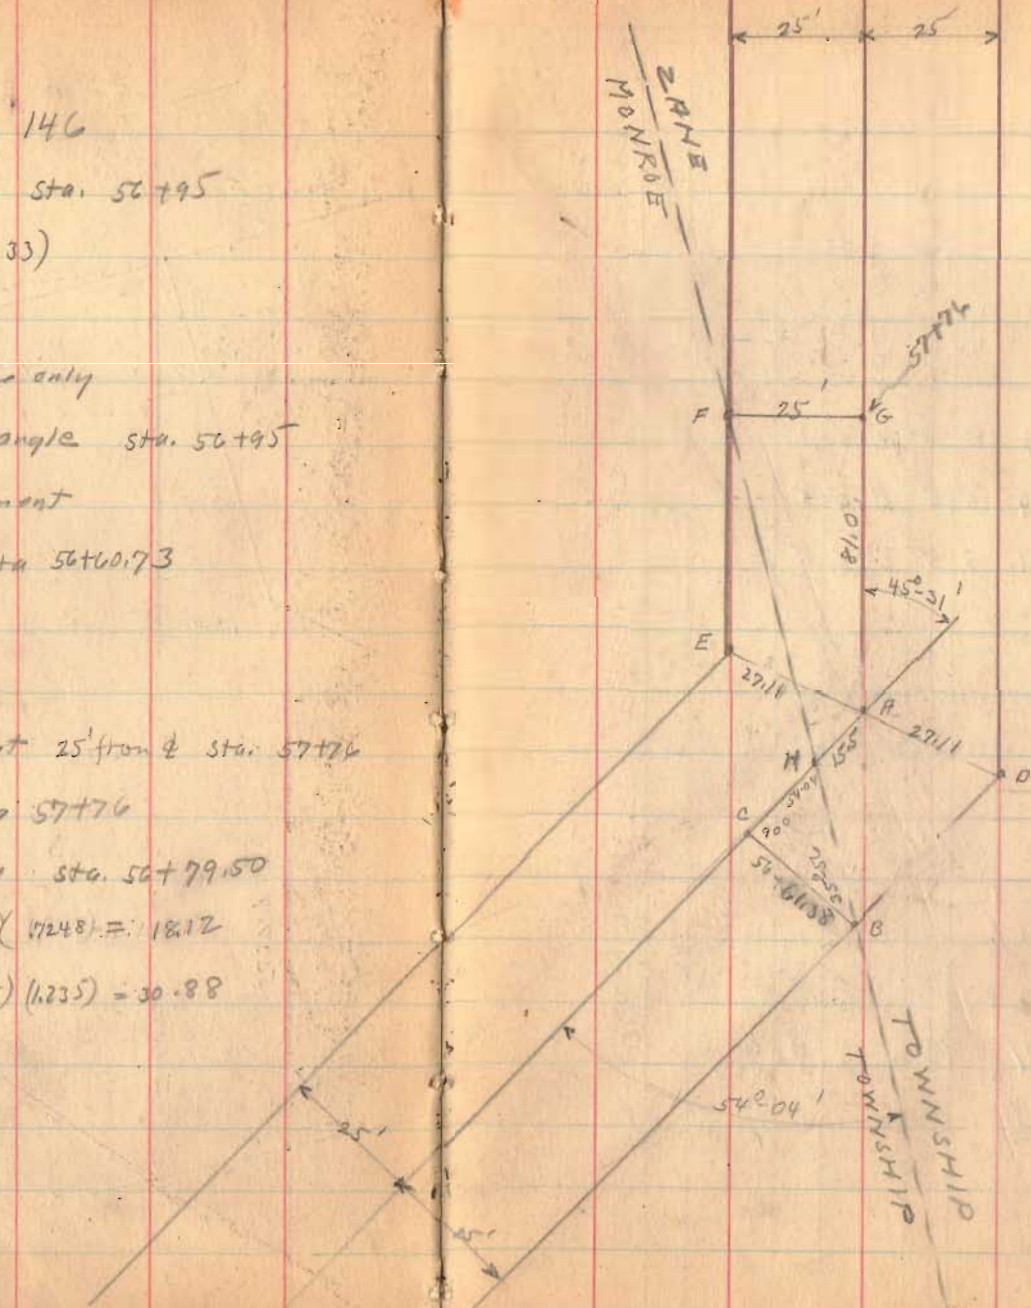 146
sta. 56+95
33)
only
angle sta. 56+95
ment
ta 56+60.73
t 25' from ℄ sta. 57+76
57+76
sta. 56+79.50
)(.7248) = 18.12
) (1.235) = 30.88
25' 25
ZANE
MONROE
57+76
F 25' G
81.0'
45°-31'
E
27.11
A
27.11
H 15.5
D
54-04
C
90°
56+61.38
B
54°-04'
TOWNSHIP
TOWNSHIP
25'